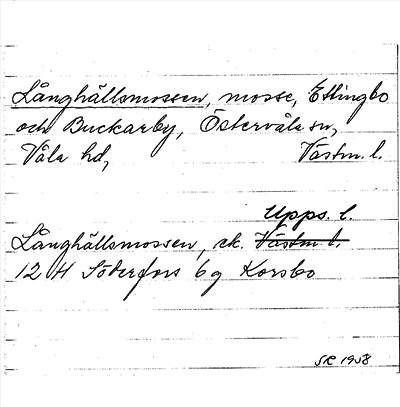 Långhällsmossen, mosse, Ettingbo
och Buckarby, Östervåla sn,
Våla hd, Västm. l.
Upps. l.
Långhällsmossen, ek. Västm l.
12 H Söderfors 6g Korsbo
SR 1958